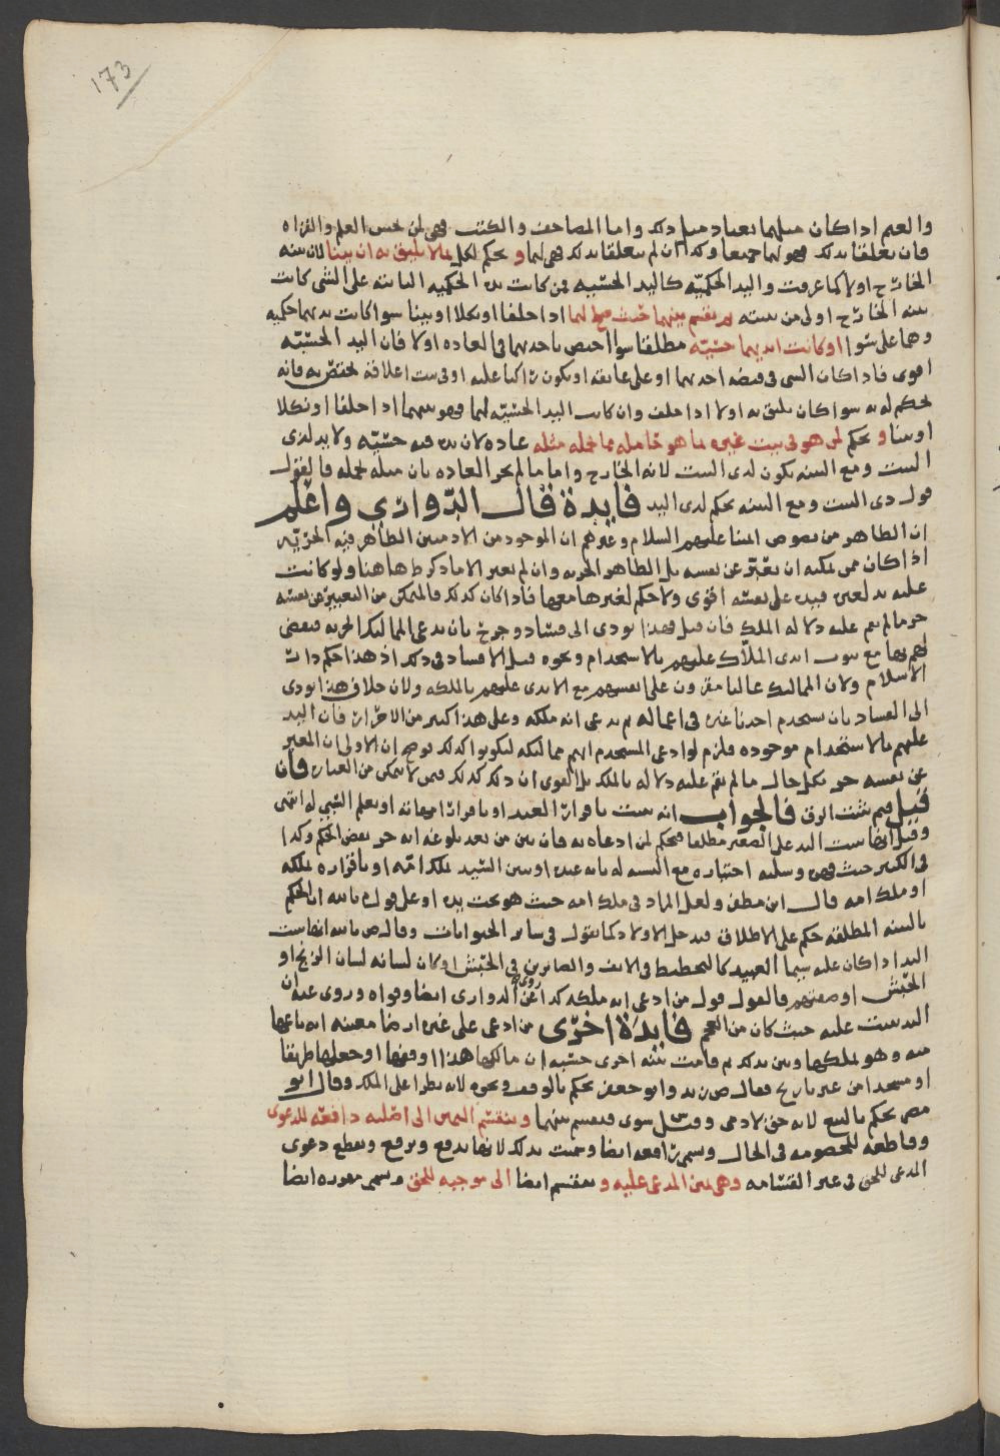 173
والعم اذا كان مثلهما يعتاد مثل ذلك واما المصاحف والكتب فهي لمن يحسن العلم والقراه
فان تعلقا بذلك فهو لهما جميعا وكذا ان لم يتعلقا بذلك فهي لهما و يحكم لكل بما يليق به ان بينا لان بينه
الخارج اولا كما عرفت واليد الحكميه كاليد الحسيه فمن كانت يده الحكميه الثابته على الشي كانت
بينه الخارج اولى من بينته ثم يقسم بينهما حيث هو لهما اذا حلفا او نكلا او بينا سوا كانت يدهما حكميه
وهما على سوا او كانت ايديهما حسيه مطلقا سوا اختص باحدهما في العاده اولا فان اليد الحسيه
اقوى فاذا كان الشي في قبضه احدهما او على عاتقه او يكون راكبا عليه او في بيت اغلاقه يختص به فانه
يحكم له به سوا كان يليق به اولا اذا حلف وان كانت اليد الحسيه لهما فهو بينهما اذا حلفا او نكلا
او بينا و يحكم لمن هو في بيت غيره بما هو حامله مما يحمله مثله عاده لان يده فيه حسيه ولا يد لذي
البيت ومع البينه يكون لذي البيت لانه الخارج واما ما لم يجر العاده بان مثله يحمله فالقول
قول ذي البيت ومع البينه يحكم لذي اليد فايدة قال الدواري واعلم
ان الظاهر من نصوص ايمتنا عليهم السلام وغيرهم ان الموجود من الادميين الظاهر فيه الحريه
اذا كان ممن يمكنه ان يعبر عن نفسه بل الظاهر الحريه وان لم يعبر الا ما ذكر ط هاهنا ولو كانت
عليه يد لغيره فيده على نفسه اقوى ولا حكم لغيرها معها فاذا كان كذلك فالمتمكن من التعبير عن نفسه
حر ما لم يقم عليه دلاله الملك فان قيل فهذا يودي الى فساد وجرح بان يدعي المماليك الحريه فيقضي
لهم بها مع ثبوت ايدي الملاك عليهم بالاستخدام ونحوه قيل لا فساد في ذلك اذ هذا حكم دار
الاسلام ولان المماليك غالبا مقرون على انفسهم مع الايدي عليهم بالملكه ولان خلاف هذا يودي
الى الفساد بان يستخدم احدنا غيره في اعماله ثم يدعي انه ملكه وعلى هذا كثير من الاحرار فان اليد
عليهم بالاستخدام موجوده فلزم لو ادعى المستخدم انهم مماليكه ليكونوا كذلك فوضح ان الاولى ان المعبر
عن نفسه حر بكل حال ما لم يقم عليه دلاله بالملك بل القوي ان ذلك كذلك فيمن لا يتمكن من العباره فان
قيل فبم يثبت الرق فالجواب انه يثبت باقرار العبد او باقرار امهاته او بعلم السبي له انتهى
وقيل ايضا يثبت اليد على الصغير مطلقا فيحكم لمن ادعاه به فان بين من بعد بلوغه انه حر نقض الحكم وكذا
في الكبير حيث قهره وسلبه اختياره مع البينه له بانه عبده او بين السيد بملك امه او باقراره بملكه
او ملك امه قال ابن مظفر ولعل المراد في ملك امه حيث هو تحت يده او على قول م بالله ان الحكم
بالبينه المطلقه حكم على الاطلاق فيدخل الاولاد كما نقول في ساير الحيوانات وقال ص بالله ايضا يثبت
اليد اذا كان عليه سيما العبيد كالتخطيط في الانف والصابرين في الحبش او كان لسانه لسان الزنج او
الحبش او صفتهم فالقول قول من ادعى انه ملكه كذا روى عن الدواري ايضا وقواه وروى عنه ان
اليد يثبت عليه حيث كان من العجم فايدة اخرى من ادعى على غيره ارضا معينه انه باعها
منه وهو يملكها وبين بذلك ثم قامت بينه اخرى حسبه ان مالكها هذا اوقفها او جعلها طريقا
او مسجدا من غير تاريخ فقال ص بن يد وابو جعفر يحكم بالوقف ونحوه لانه يطرا على الملك وقال ابو
مضر يحكم بالبيع لانه حق لادمي وقيل سوى فيقسم بينهما و ينقسم اليمين الى اصليه دافعه للدعوى
وقاطعه للخصومه في الحال وتسمى رافعه ايضا وسميت بذلك لانها تدفع وترفع وتقطع دعوى
المدعي للحق في غير القسامه وهي يمين المدعى عليه و تنقسم ايضا الى موجبه للحق وتسمى مقرره ايضا